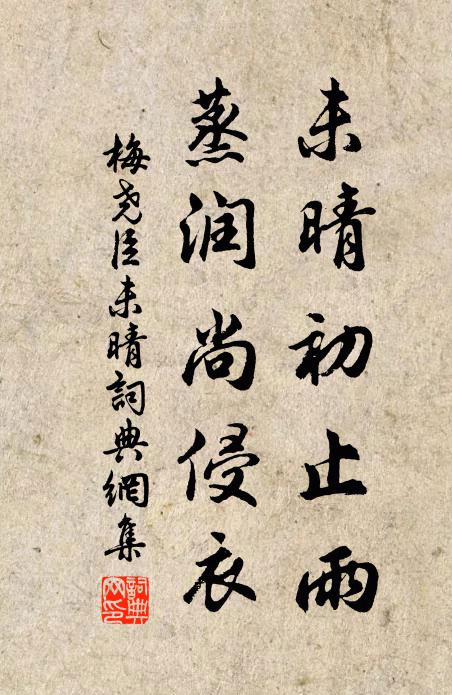 未晴初止雨
蒸润尚侵衣
梅尧臣未晴詞典網集
詞典网印